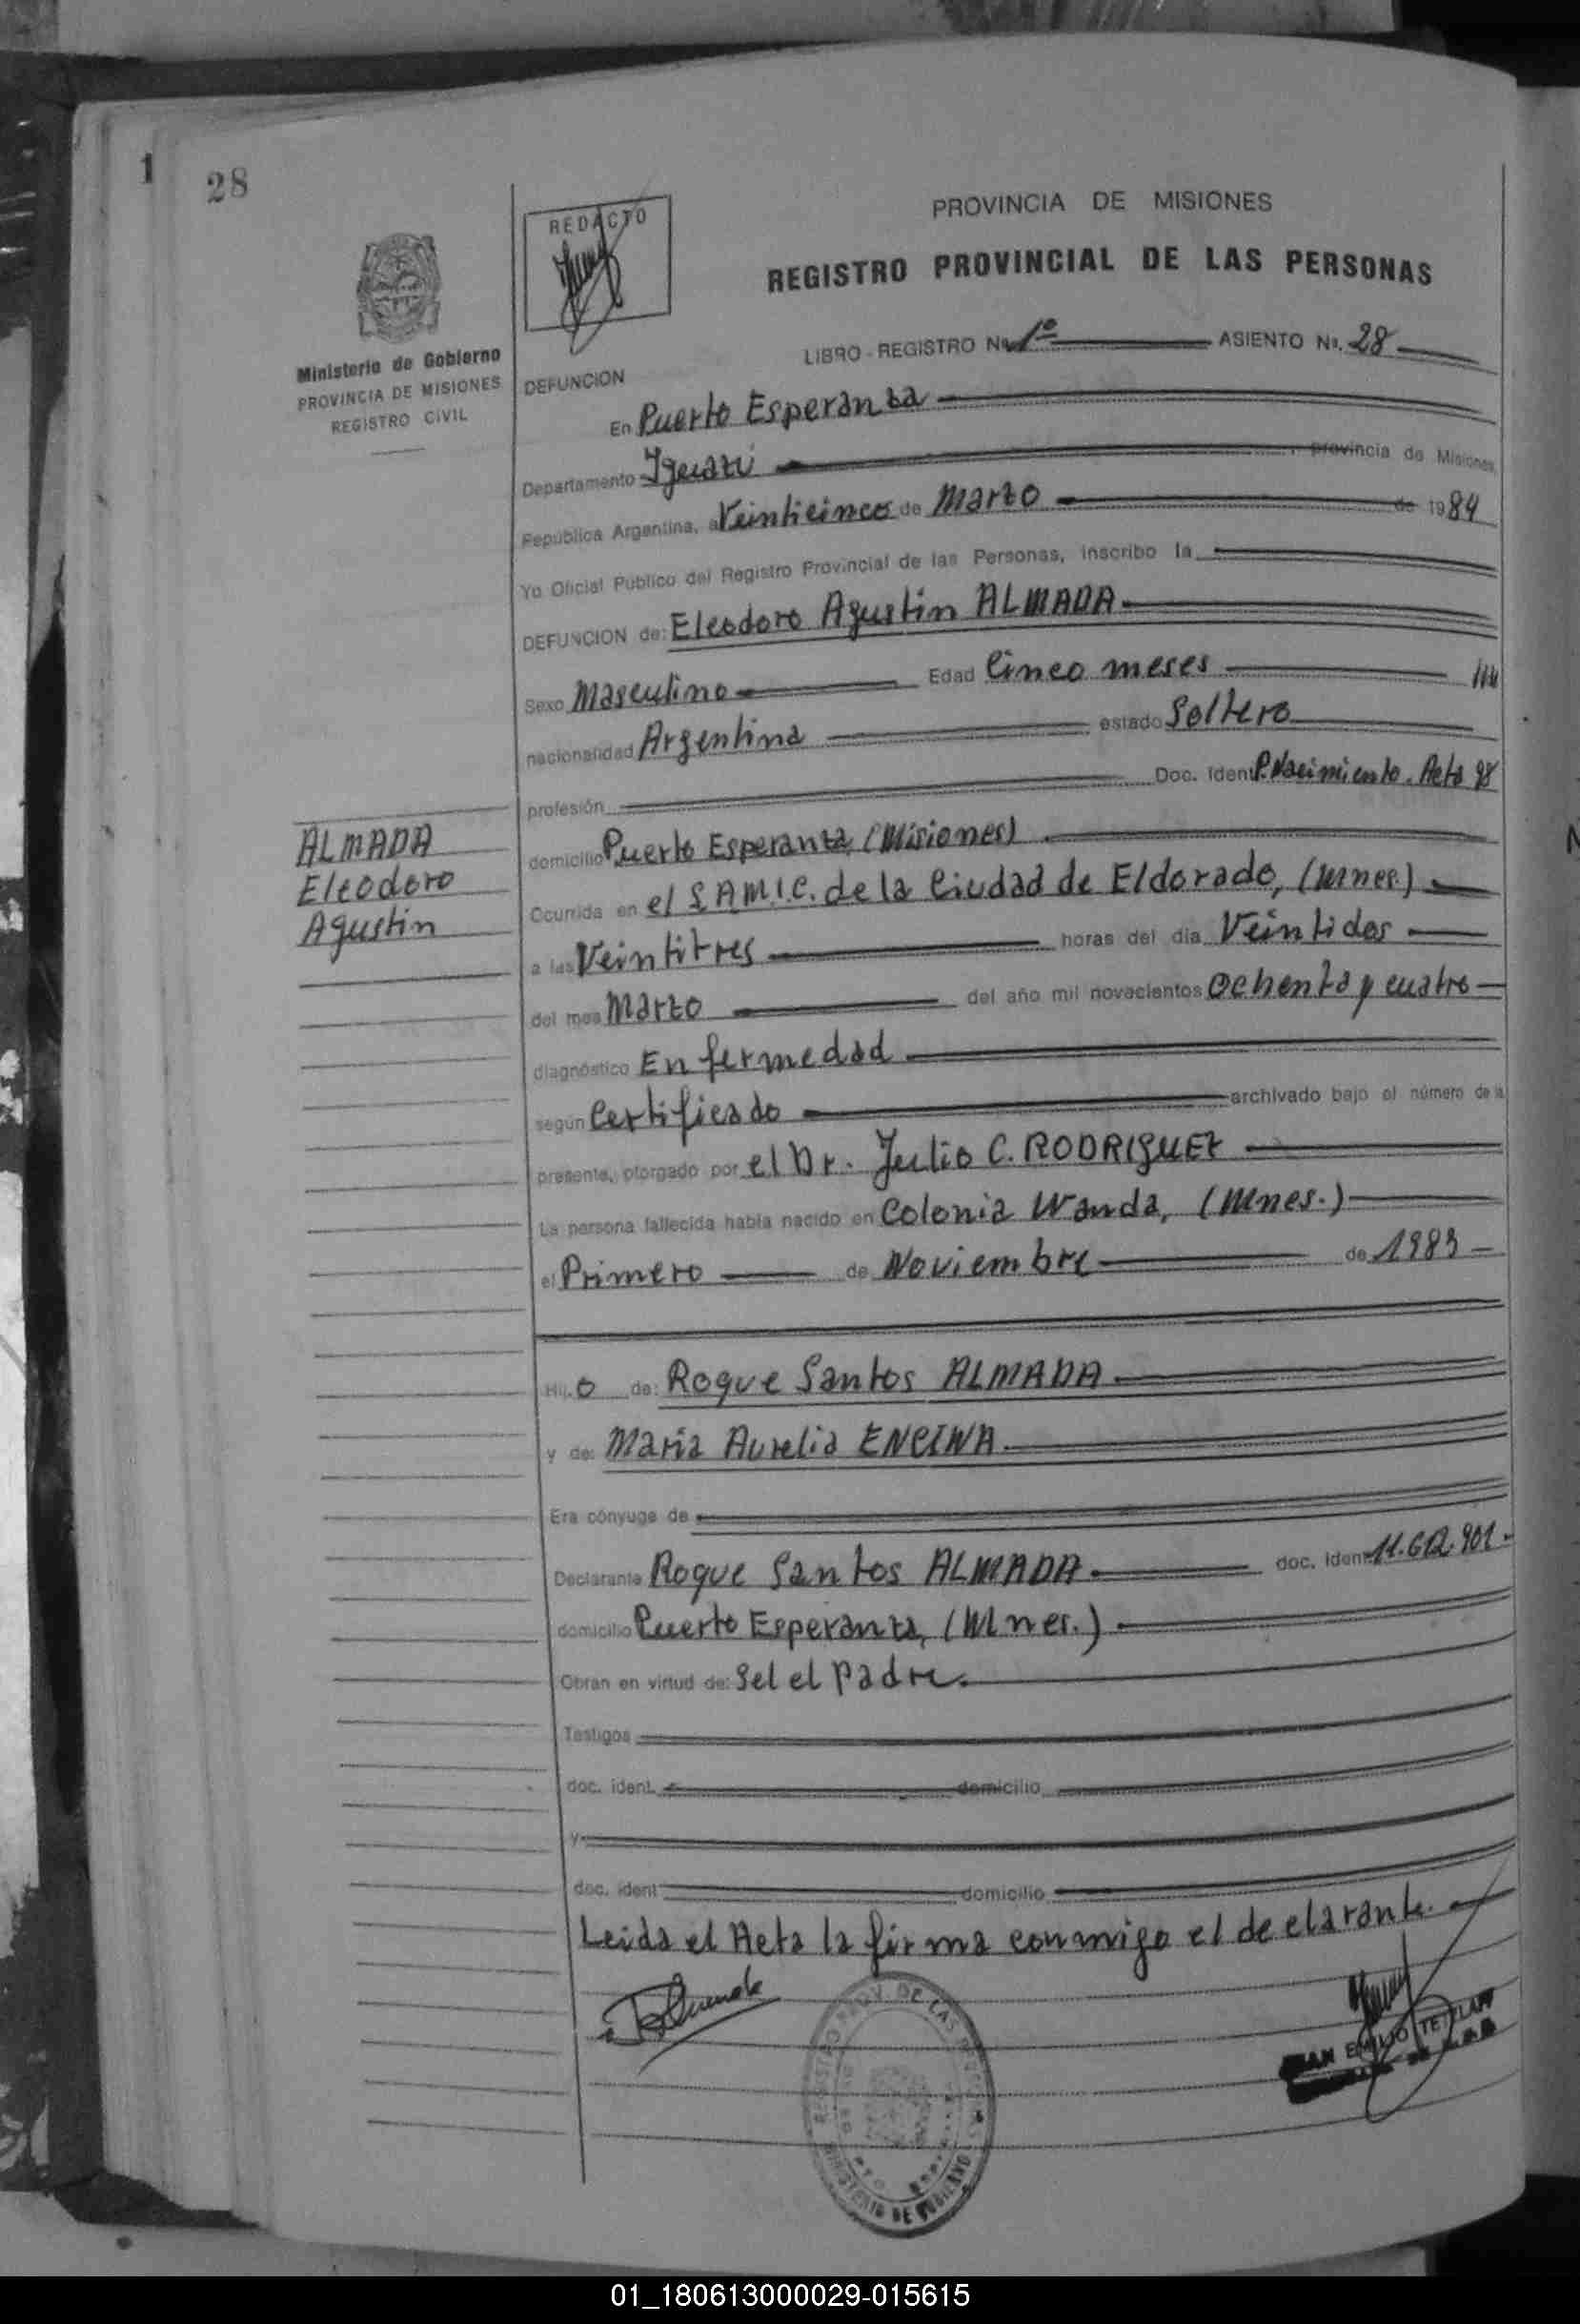 1 28
REDACTO
PROVINCIA DE MISIONES
REGISTRO PROVINCIAL DE LAS PERSONAS
Ministerio de Gobierno
PROVINCIA DE MISIONES
REGISTRO CIVIL
LIBRO - REGISTRO Nº 1º ASIENTO Nº. 28
DEFUNCION
En Puerto Esperanza
Departamento Iguazú provincia de Misiones,
República Argentina, a Veinticinco de Marzo de 1984
Yo Oficial Público del Registro Provincial de las Personas, inscribo la
DEFUNCION de: Eleodoro Agustin ALMADA
Sexo Masculino Edad Cinco meses
nacionalidad Argentina estado Soltero
profesión Doc. Ident. P. Nacimiento. Acta 98
ALMADA
Eleodoro
Agustin
domicilio Puerto Esperanza, (Misiones)
Ocurrida en el S.A.M.I.C. de la Ciudad de Eldorado, (Mnes.)
a las Veintitres horas del día Veintidos
del mes Marzo del año mil novecientos Ochenta y cuatro
diagnóstico Enfermedad
según Certificado archivado bajo el número de la
presente, otorgado por el Dr. Julio C. RODRIGUEZ
La persona fallecida había nacido en Colonia Wanda, (Mnes.)
el Primero de Noviembre de 1983
Hij o de: Roque Santos ALMADA
y de: Maria Aurelia ENCINA
Era cónyuge de
Declarante Roque Santos ALMADA doc. ident. 11.612.901.
domicilio Puerto Esperanza, (Mnes.)
Obran en virtud de: Sel el padre.
Testigos
doc. ident. domicilio
y
doc. ident domicilio
Leida el Acta la firma conmigo el declarante.
REGISTRO PROV. DE LAS PERSONAS
MINISTERIO DE GOBIERNO
EMILIO TETZLAFF
01_180613000029-015615